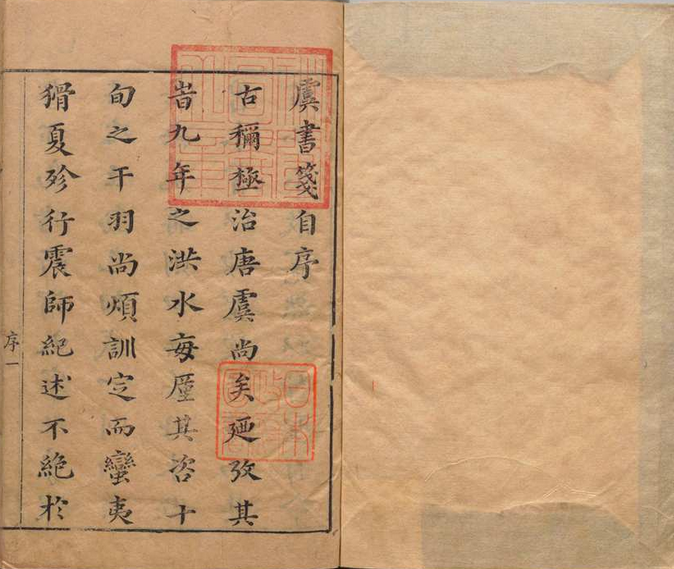 虞書箋自序
古稱極治唐虞尚矣廼攷其
昔九年之洪水每厪其咨十
旬之干羽尚煩訓定而蠻夷
猾夏殄行震師紀述不絕於
序一